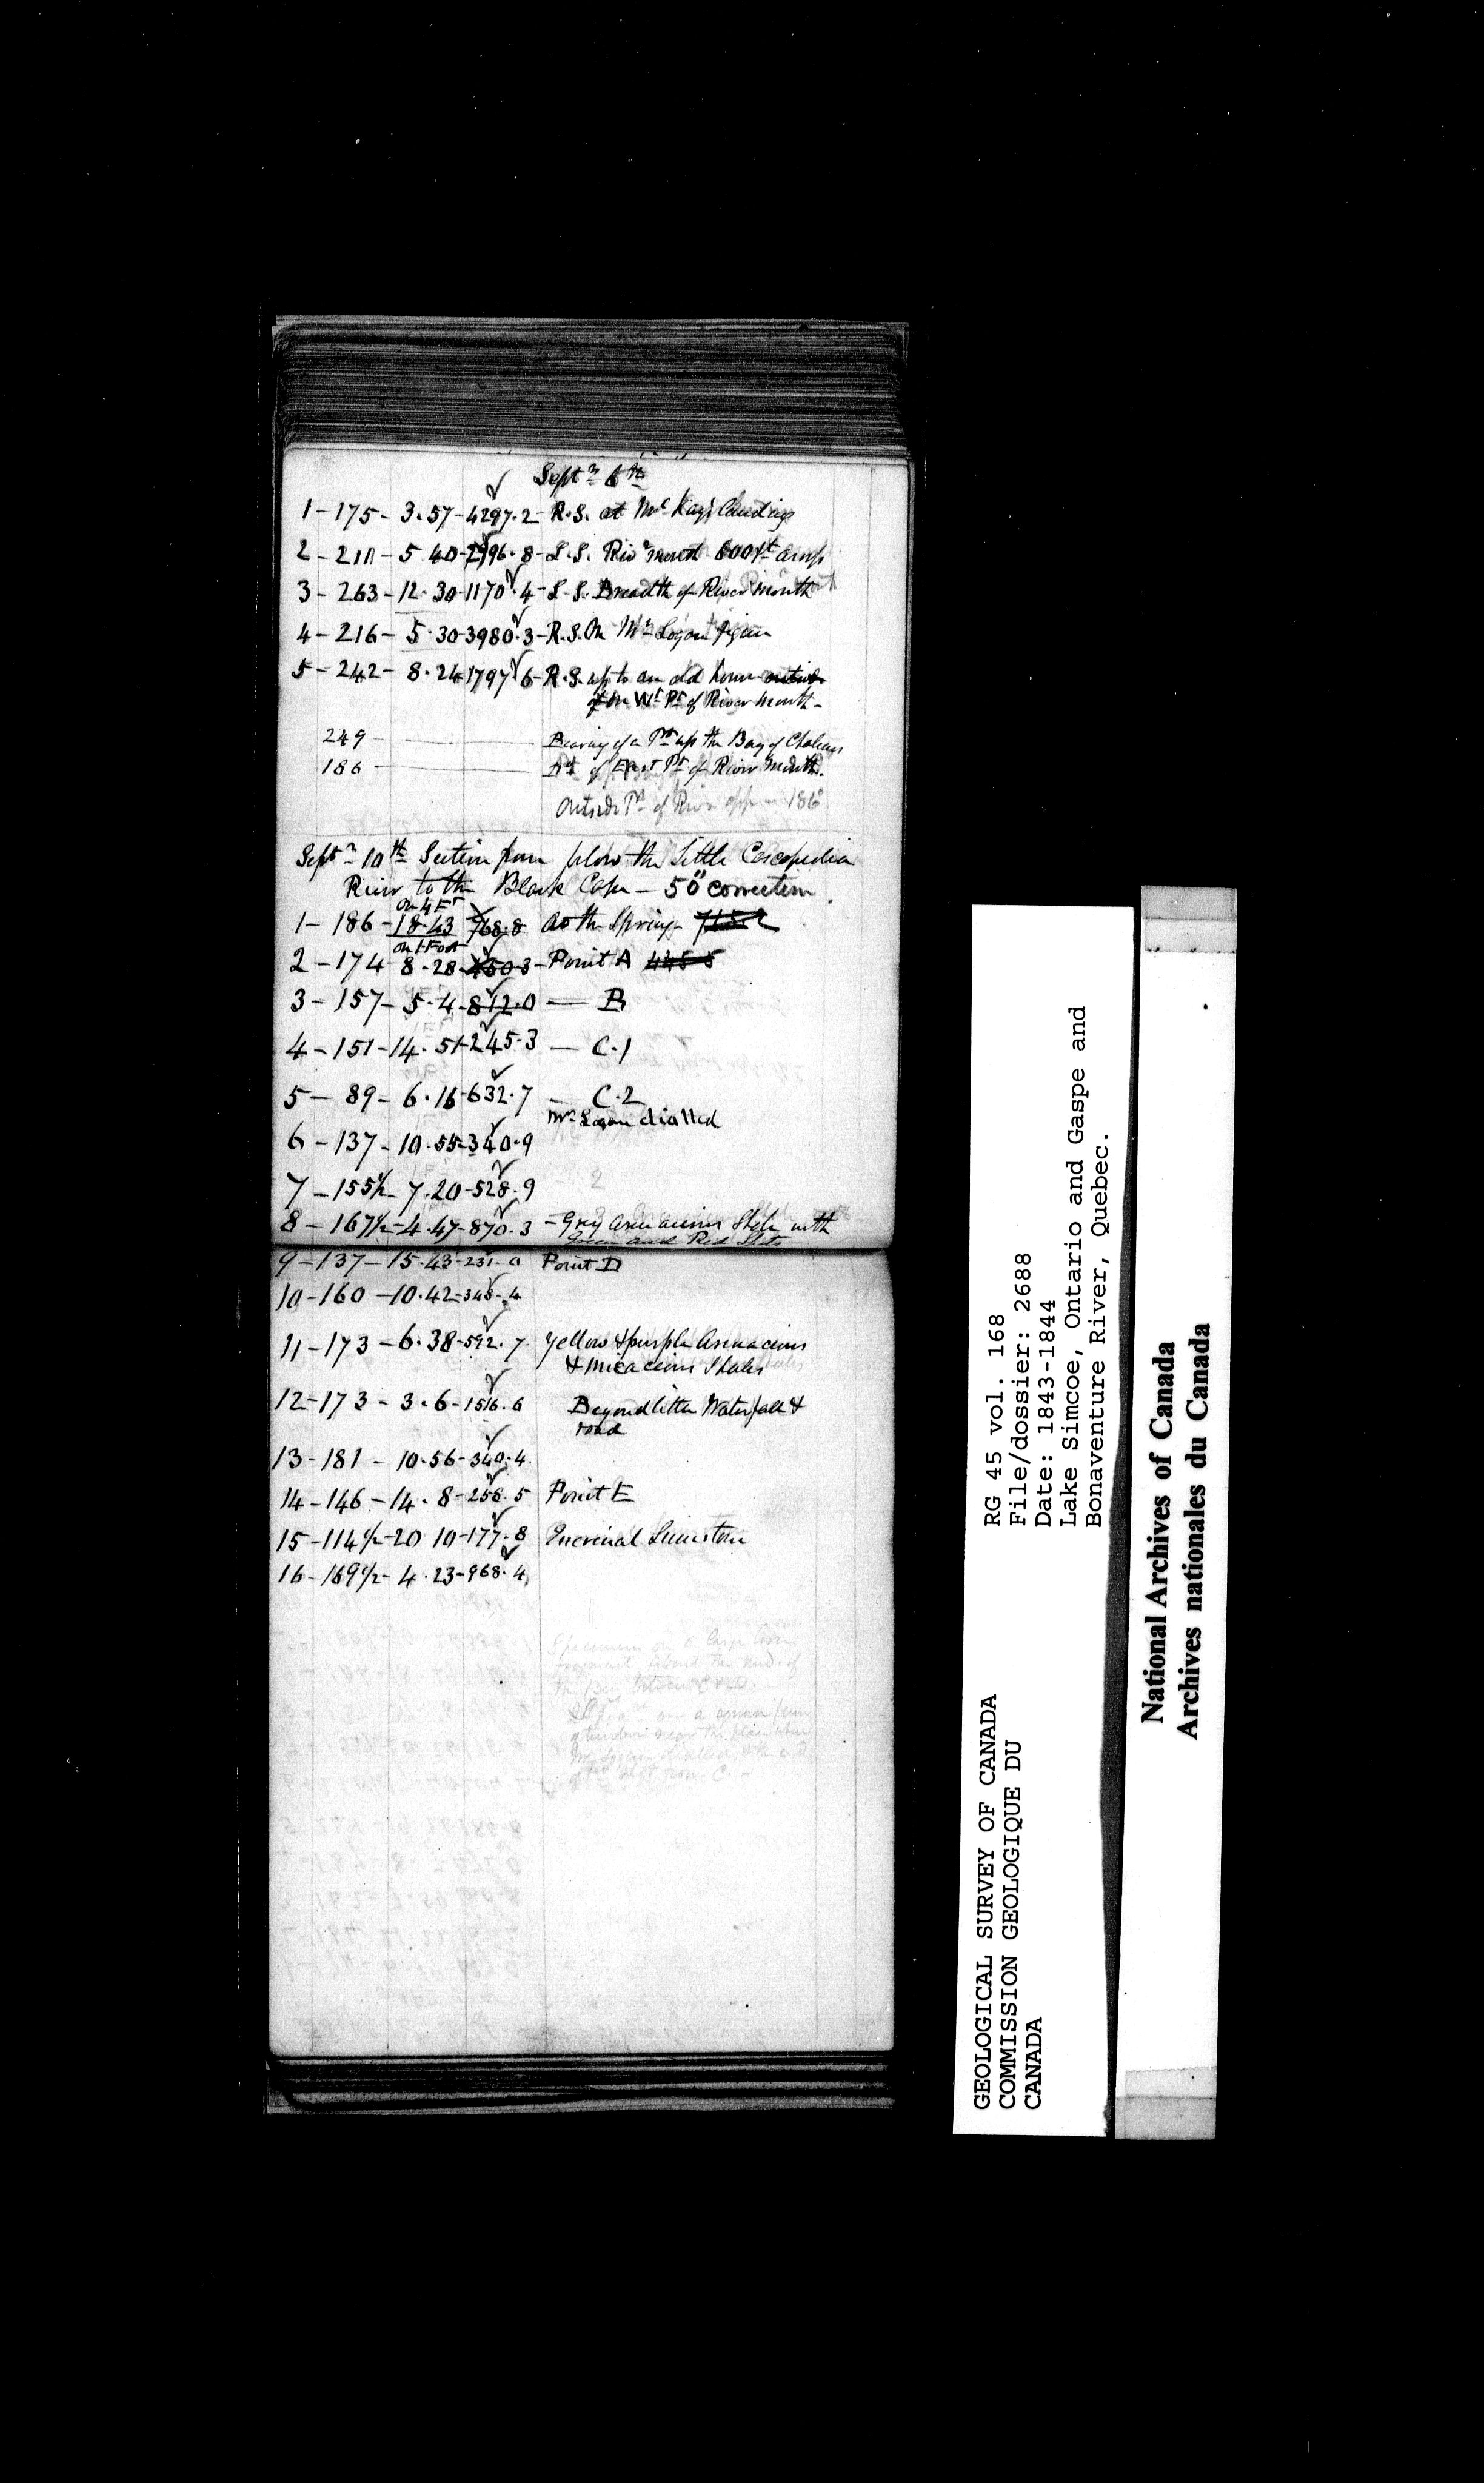 Septr 6th
1 - 175 - 3.57 - 4297.2 - R.S. at McKay's landing
2 - 211 - 5 40 - 2996.8 - L.S. Rivr mouth 600 ft
3 - 263 - 12.30 - 1170.4 - L.S. Breadth of River mouth
4 - 216 - 5.30 - 3980.3 - R.S. On Mr Logan again
5 - 242 - 8.24 - 1797.6 - R.S. up to an old house outside
of on Wt Pt of River Mouth -
249 - Bearing of a Pt up the Bay of Chaleurs
186 - Do of East Pt of River Mouth.
Outside Pt of River opp - 186°
Septr 10th Section from below the Little Cascapedia
River to the Black Cape - 50" correction
on 4 Ft
1 - 186 - 18.43 768.8 at the Spring - 768.2
on 1 Foot
2 - 174 - 8.28 - 450.3 - Point A 445 5
3 - 157 - 5.4 - 812.0 — B
4 - 151 - 14.51 - 245.3 — C.1
5 - 89 - 6.16 - 632.7 — C.2
Mr Logan dialled
6 - 137 - 10.55 - 340.9
7 - 155½ - 7.20 - 528.9
8 - 167½ - 4.47 - 870.3 - Grey arenaceous Shale with
Green and Red Slate
9 - 137 - 15.43 - 231.0 Point D
10 - 160 - 10.42 - 348.4
11 - 173 - 6.38 - 592.7 Yellow & purple Arenaceous
& micaceous Shales
12 - 173 - 3.6 - 1516.6 Beyond little Waterfall &
road
13 - 181 - 10.56 - 340.4
14 - 146 - 14.8 - 258.5 Point E
15 - 114½ - 20 10 - 177.8 Encrinal Limestone
16 - 169½ - 4.23 - 968.4
Specimen on a large
fragment about the mid. of
the Bay between C & D.
near the place where
Mr Logan dialled
from C. -
GEOLOGICAL SURVEY OF CANADA
COMMISSION GEOLOGIQUE DU
CANADA
RG 45 vol. 168
File/dossier: 2688
Date: 1843-1844
Lake Simcoe, Ontario and Gaspe and
Bonaventure River, Quebec.
National Archives of Canada
Archives nationales du Canada